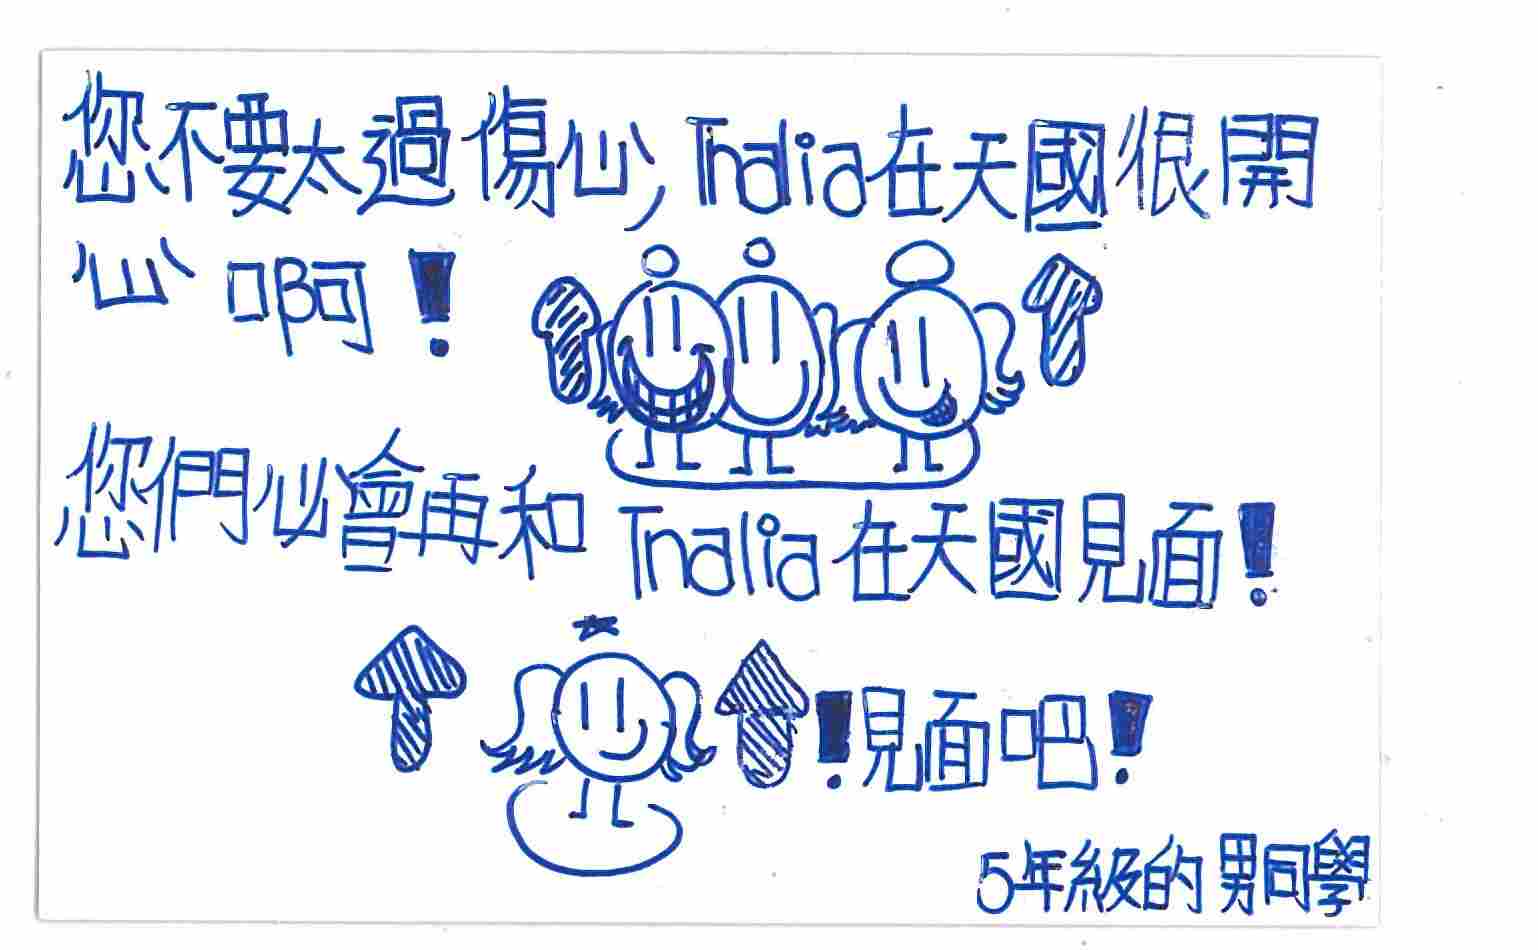 您不要太過傷心,Tnalia在天國很開
心啊!
您們必會再和Tnalia在天國見面!
!見面吧!
5年級的男同學